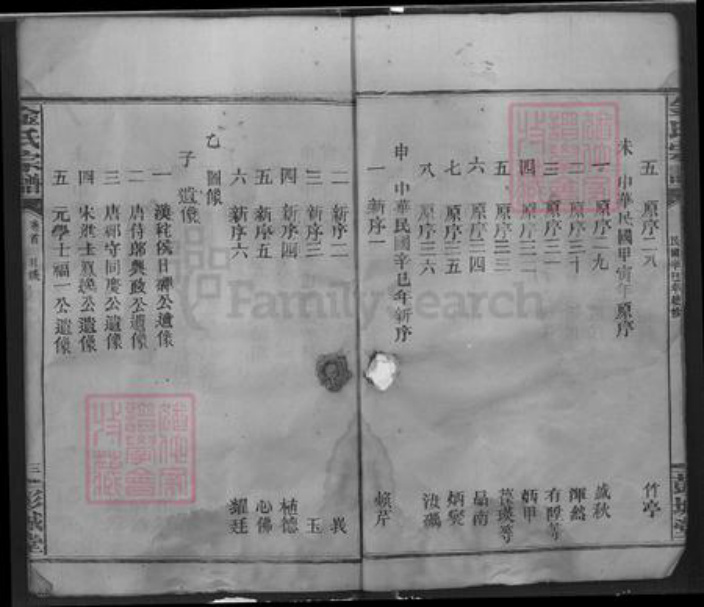 五 原序二八 竹亭
未 中華民國甲寅年原序
一 原序二九 盛秋
二 原序三十 渾然
三 原序三一
四 原序三二 炳甲
五 原序三三
六 原序三四 晶南
七 原序三五 炳燮
八 原序三六
申 中華民國辛巳年新序
一 新序一 賴芹
二 新序二 峩
三 新序三 玉
四 新序四 植德
五 新序五 心佛
六 新序六 耀廷
乙 圖像
子 遺像
一 漢秺侯日磾公遺像
二 唐侍郎興政公遺像
三 唐祁守同慶公遺像
四 宋進士 公遺像
五 元學士福一公遺像
金氏宗譜
卷首 目錄
三
彭城堂
民國辛巳年續修
FamilySearch